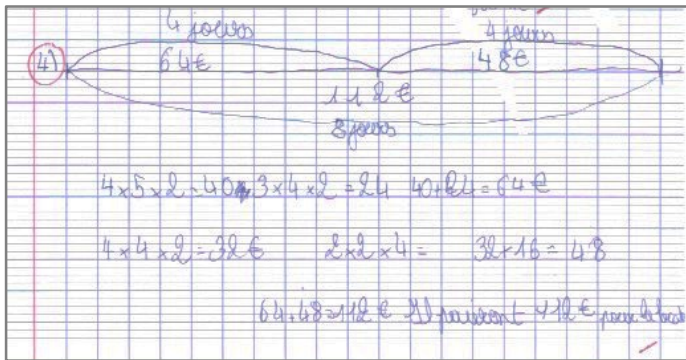 4 jours 4 jours
4) 64€ 48€
112€
8 jours
4×5×2=40 3×4×2=24 40+24=64€
4×4×2=32€ 2×2×4= 32+16=48
64+48=112€ Il pairont 112€ pour